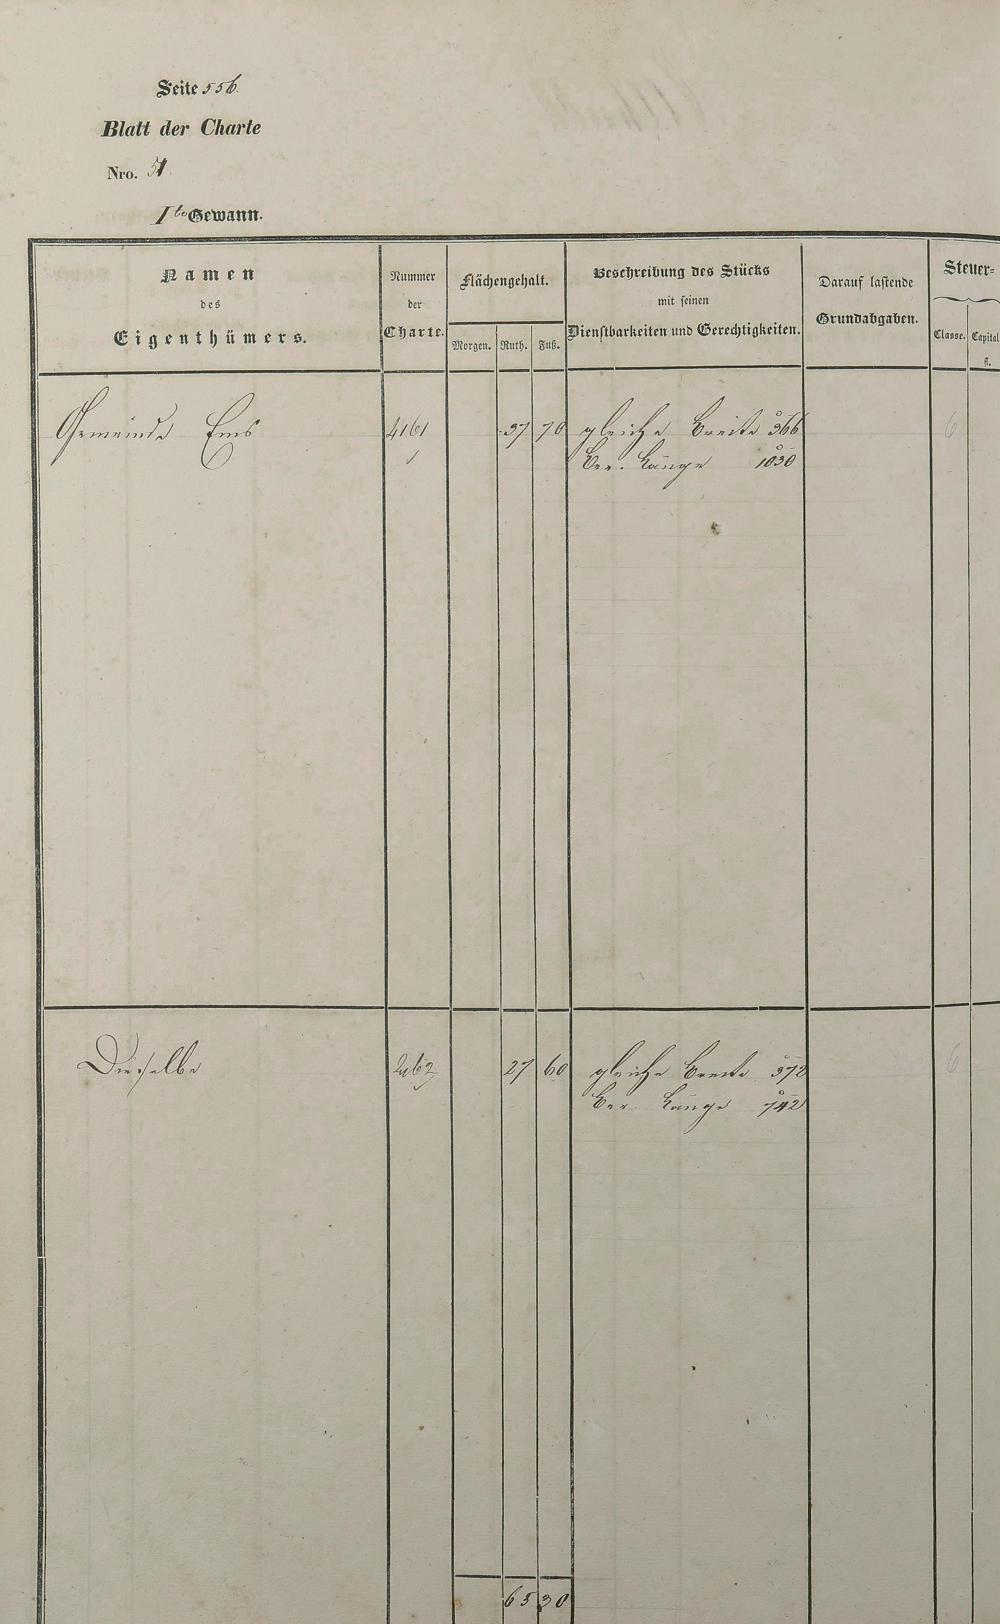 Seite 556.
Blatt der Charte
Nro. 51
I te Gewann.
Namen
des
Eigenthümers.
Nummer
der
Charte.
Flächengehalt.
Morgen. Ruth. Fuß.
Beschreibung des Stücks
mit seinen
Dienstbarkeiten und Gerechtigkeiten.
Darauf lastende
Grundabgaben.
Steuer-
Classe. Capital
fl.
Gemeinde Ems 4161 37 70 gleiche Breite 366 6
Ber. Länge 1030
Dieselbe 4162 27 60 gleiche Breite 372 6
Ber. Länge 742
65 30